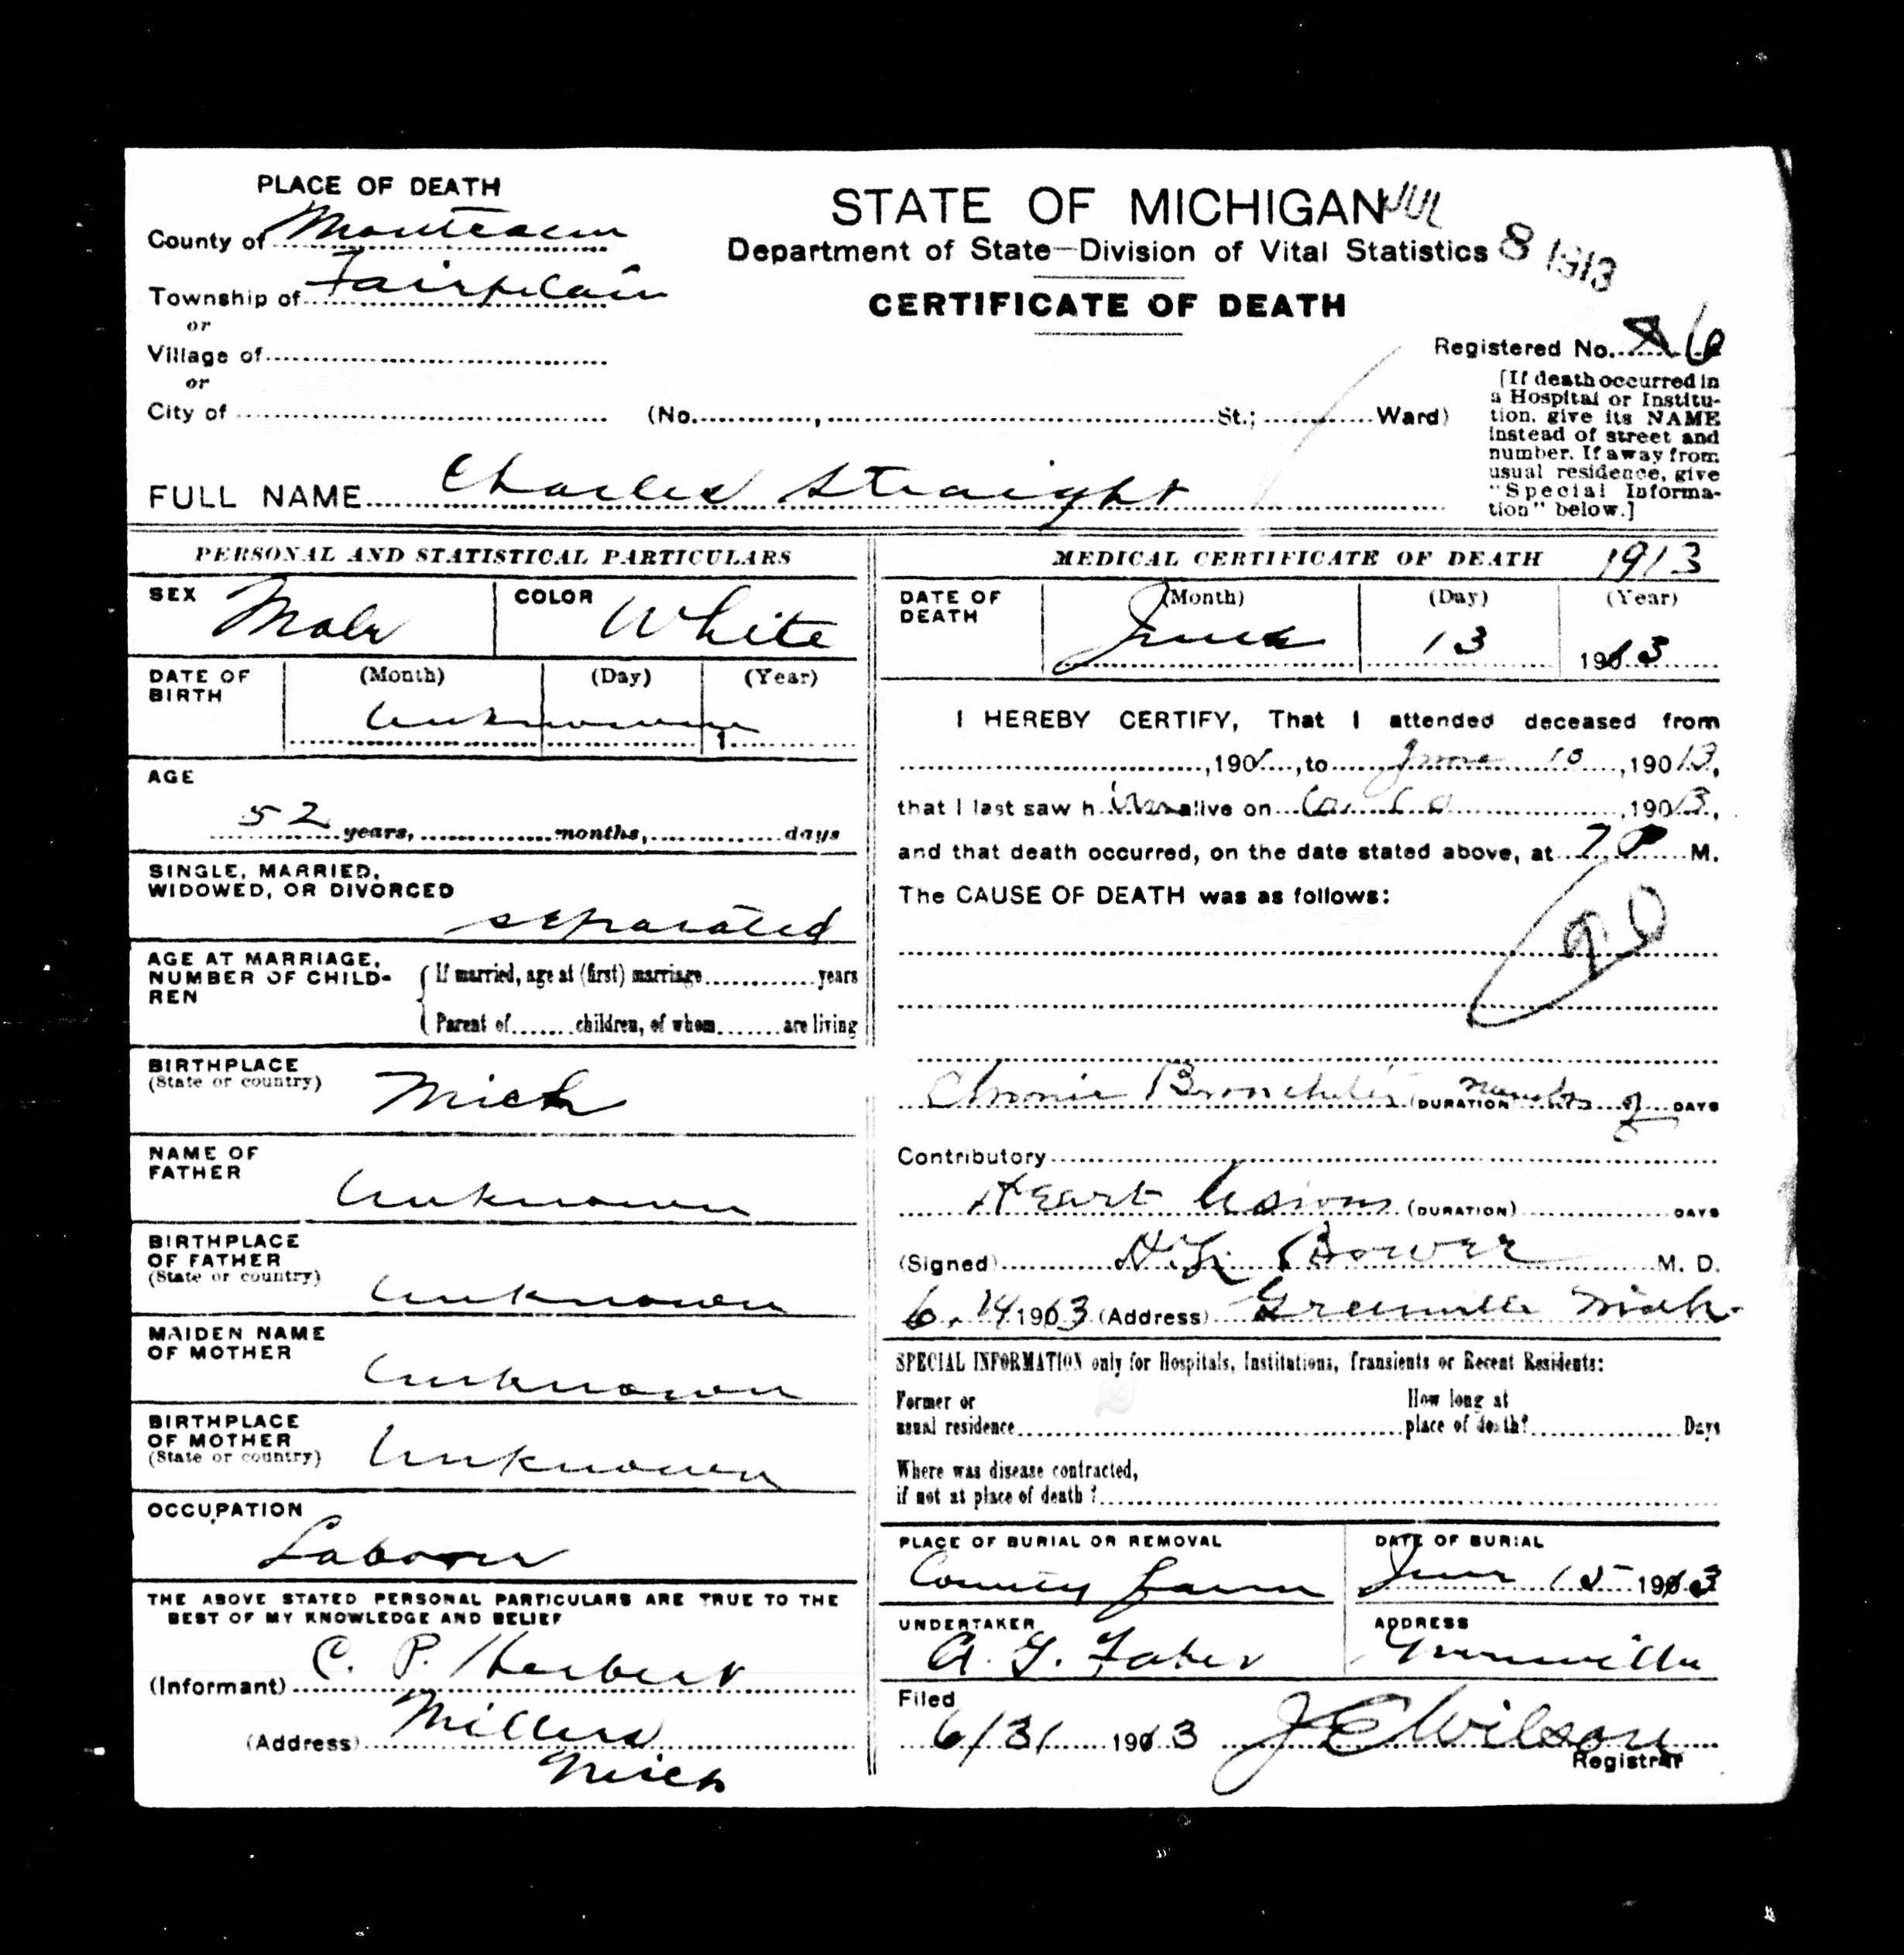 PLACE OF DEATH
County of Montcalm
Township of Fairplain
or
Village of
or
City of
STATE OF MICHIGAN
JUL 8 1913
Department of State—Division of Vital Statistics
CERTIFICATE OF DEATH
Registered No. 6
(No. , St.; Ward)
[If death occurred in
a Hospital or Institu-
tion, give its NAME
instead of street and
number. If away from
usual residence, give
"Special Informa-
tion" below.]
FULL NAME Charles Straight
PERSONAL AND STATISTICAL PARTICULARS
SEX Male COLOR White
DATE OF BIRTH (Month) (Day) (Year)
Unknown 1
AGE
52 years, months, days
SINGLE, MARRIED,
WIDOWED, OR DIVORCED
separated
AGE AT MARRIAGE,
NUMBER OF CHILD-
REN
If married, age at (first) marriage years
Parent of children, of whom are living
BIRTHPLACE
(State or country) Mich
NAME OF
FATHER Unknown
BIRTHPLACE
OF FATHER
(State or country) Unknown
MAIDEN NAME
OF MOTHER Unknown
BIRTHPLACE
OF MOTHER
(State or country) Unknown
OCCUPATION
Laborer
THE ABOVE STATED PERSONAL PARTICULARS ARE TRUE TO THE
BEST OF MY KNOWLEDGE AND BELIEF
(Informant) C. P. Herbert
(Address) Millers
Mich
MEDICAL CERTIFICATE OF DEATH 1913
DATE OF DEATH (Month) (Day) (Year)
June 13 1913
I HEREBY CERTIFY, That I attended deceased from
, 190 , to June 10 , 19013,
that I last saw him alive on , 19013,
and that death occurred, on the date stated above, at 7 P M.
The CAUSE OF DEATH was as follows:
90
Chronic Bronchitis (DURATION) DAYS
Contributory
Heart lesions (DURATION) DAYS
(Signed) Bower M. D.
6. 14 1913 (Address) Greenville Mich.
SPECIAL INFORMATION only for Hospitals, Institutions, Transients or Recent Residents:
Former or
usual residence
How long at
place of death? Days
Where was disease contracted,
if not at place of death?
PLACE OF BURIAL OR REMOVAL
County farm
DATE OF BURIAL
June 15 1913
UNDERTAKER
A. G. Faber
ADDRESS
Greenville
Filed
6/31 1913 J E Wilson
Registrar